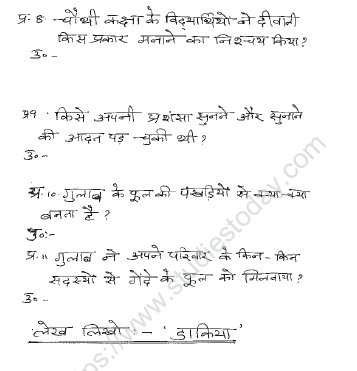 प्र: 8 चौथी कक्षा के विद्यार्थियो ने दीवाली
किस प्रकार मनाने का निश्चय किया?
उ० -
प्र9. किसे अपनी प्रशंसा सुनने और सुनाने
की आदत पड़ चुकी थी?
उ० -
प्र: 10. गुलाब के फूल की पंखड़ियों से क्या-क्या
बनता है?
उ०:-
प्र: 11 गुलाब ने अपने परिवार के किन-किन
सदस्यों से गेंदे के फूल को मिलवाया?
उ० -
लेख लिखो :- 'डाकिया'
https://www.studiestoday.com